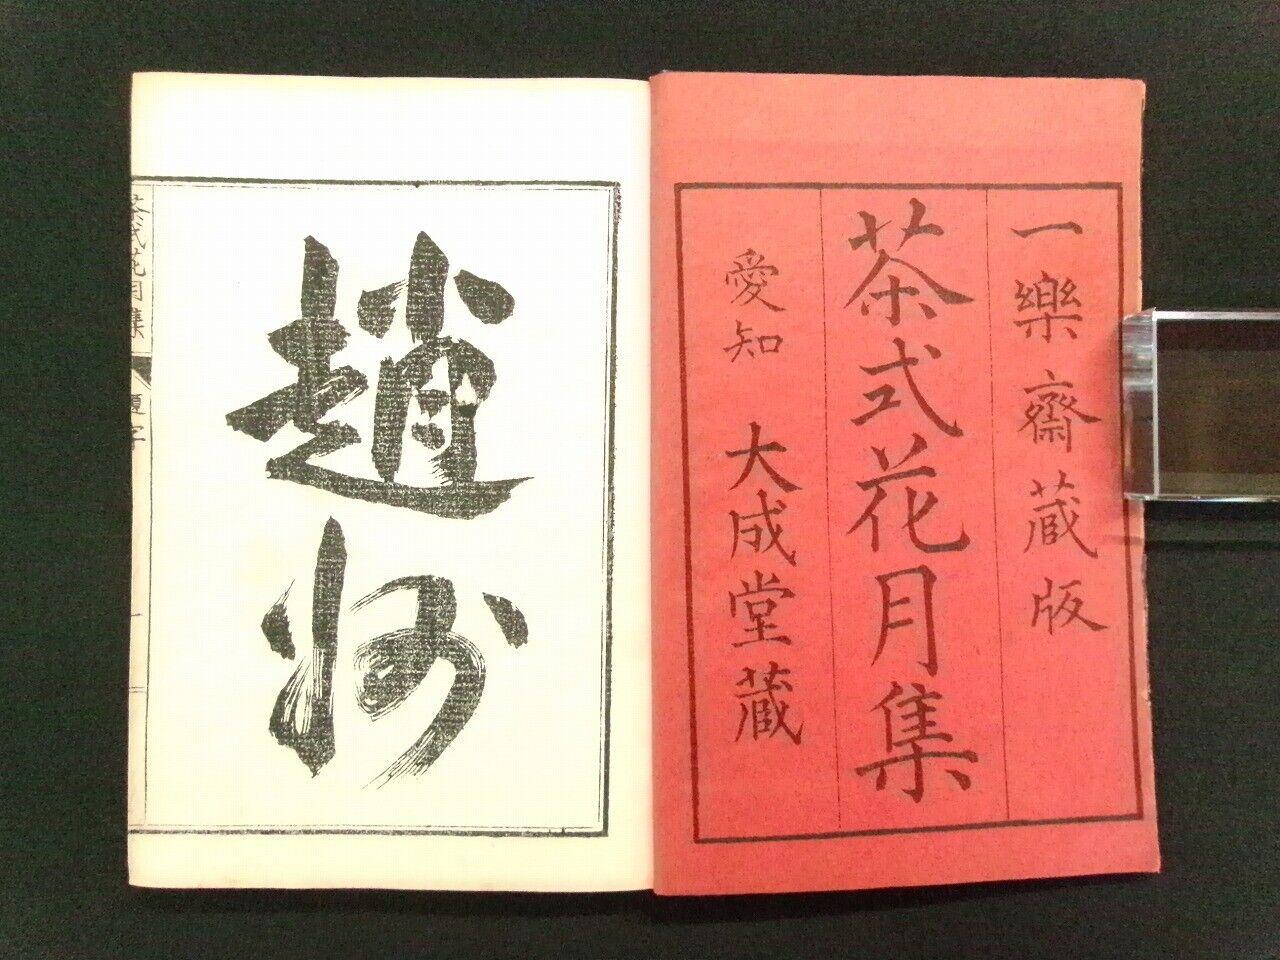 一樂齋蔵版
茶式花月集
愛知 大成堂蔵
趙州
茶式花月集 題字 一